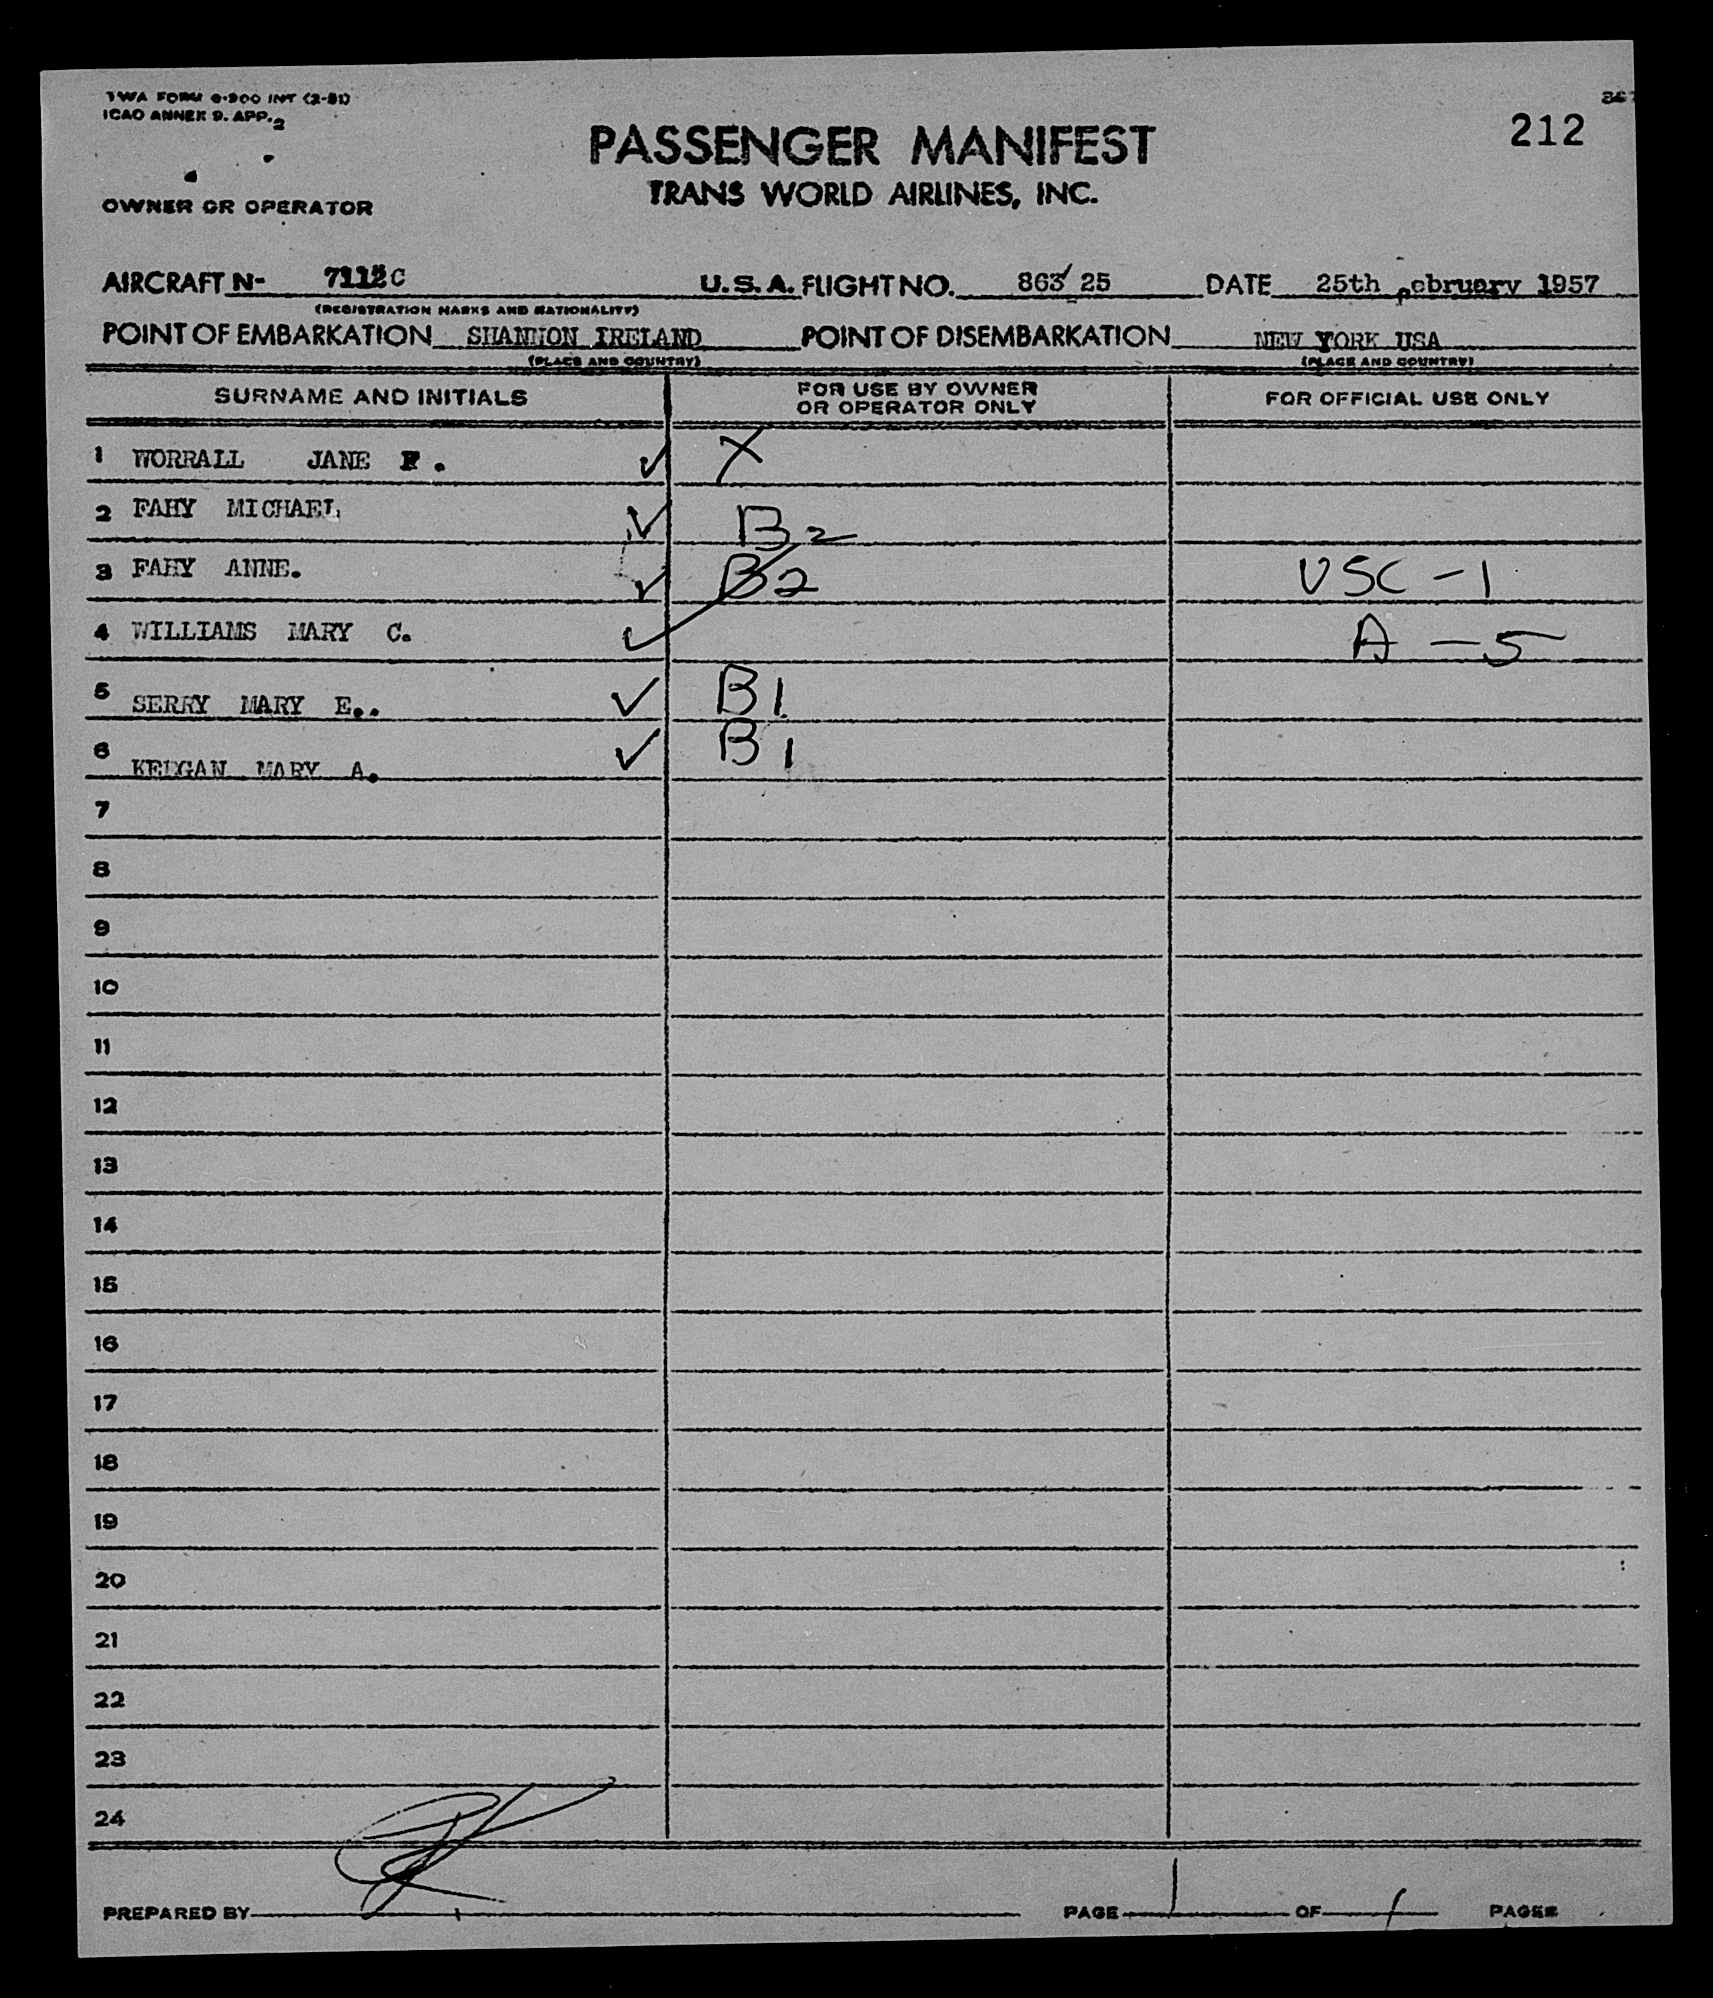 TWA FORM 6-900 INT (2-51)
ICAO ANNEX 9. APP. 2
212
PASSENGER MANIFEST
TRANS WORLD AIRLINES, INC.
OWNER OR OPERATOR
AIRCRAFT N- 7112C U.S.A. FLIGHT NO. 863 25 DATE 25th February 1957
(REGISTRATION MARKS AND NATIONALITY)
POINT OF EMBARKATION SHANNON IRELAND POINT OF DISEMBARKATION NEW YORK USA
(PLACE AND COUNTRY) (PLACE AND COUNTRY)
SURNAME AND INITIALS FOR USE BY OWNER OR OPERATOR ONLY FOR OFFICIAL USE ONLY
1 WORRALL JANE F. ✓ X
2 FAHY MICHAEL ✓ B2
3 FAHY ANNE. ✓ B2 USC - 1
4 WILLIAMS MARY C. ✓ A - 5
5 SERRY MARY E.. ✓ B1
6 KEEGAN MARY A. ✓ B1
7
8
9
10
11
12
13
14
15
16
17
18
19
20
21
22
23
24
PREPARED BY PAGE 1 OF 1 PAGES